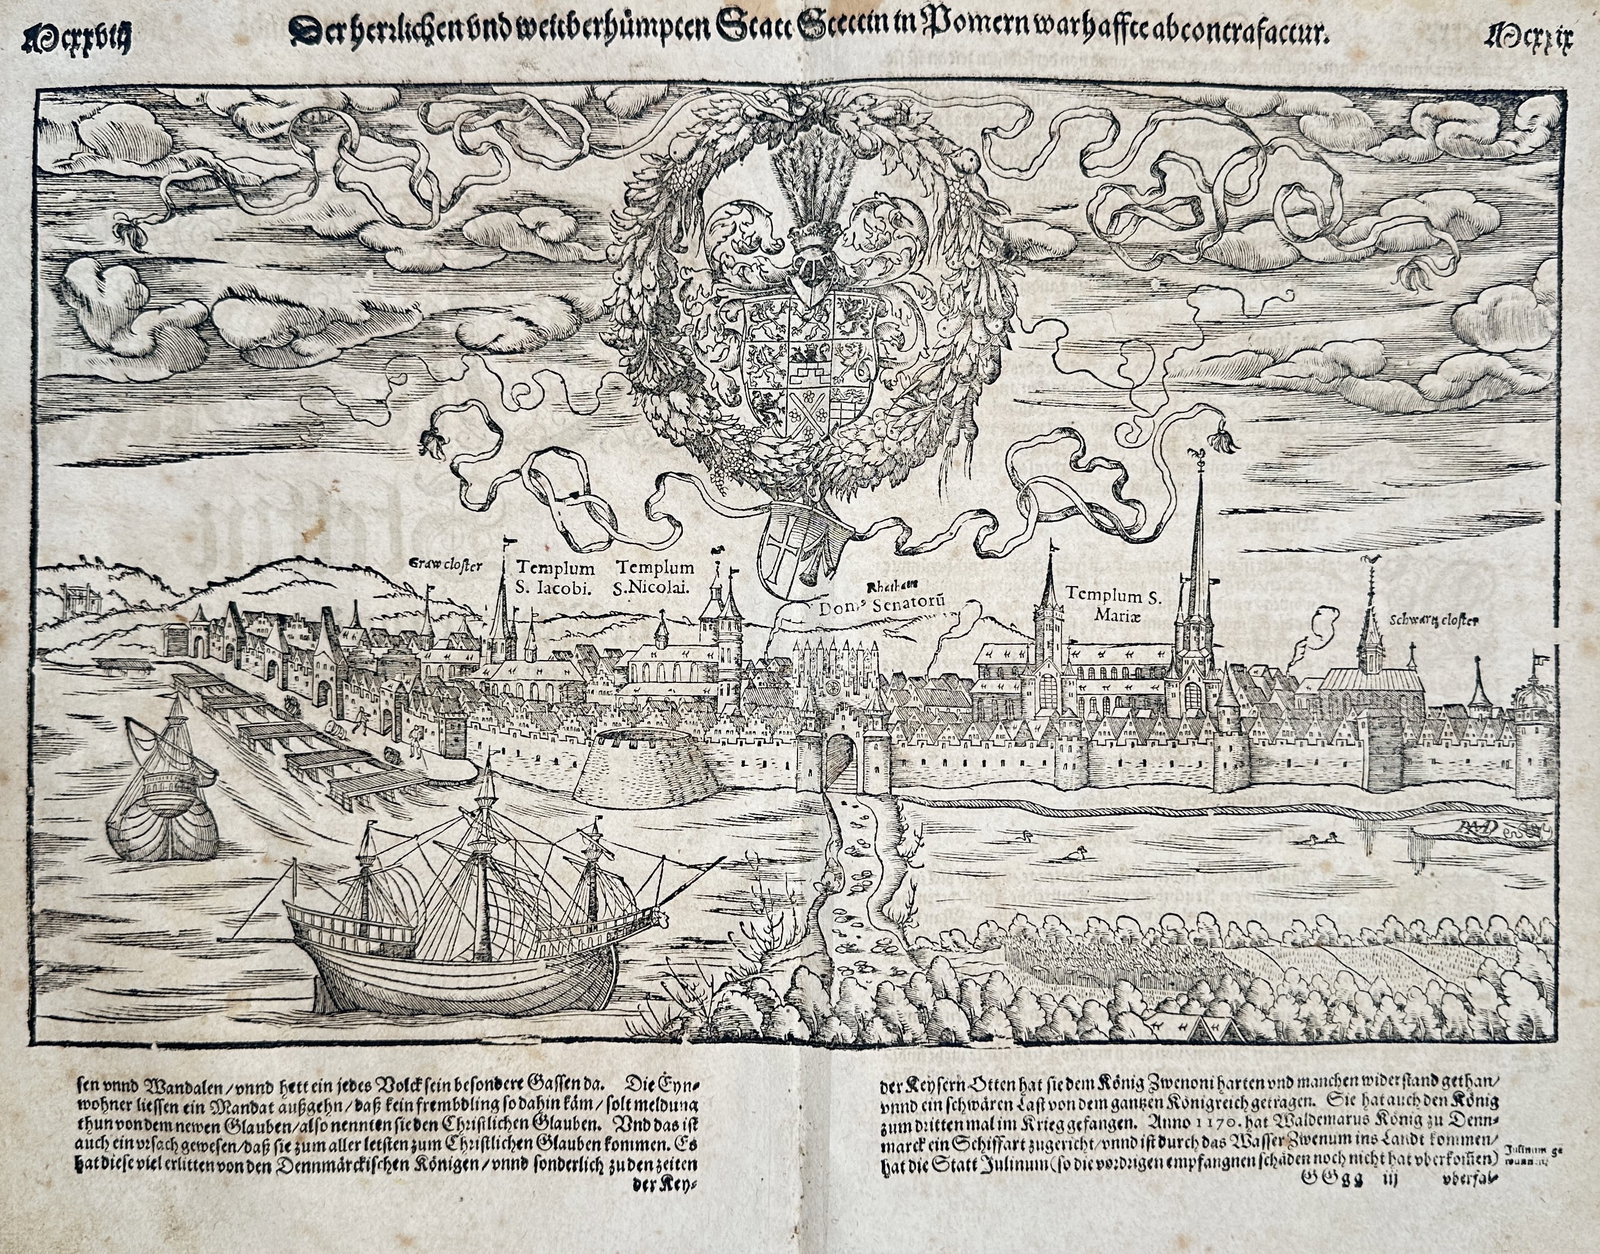 Mcxxviij
Der herrlichen vnd weitberhümpten Statt Stettin in Pomern warhaffte abcontrafactur.
Mcxxix
Graw closter
Templum
S. Iacobi.
Templum
S. Nicolai.
Rhathaus
Domꝰ Senatorū
Templum S.
Mariæ
Schwartz closter
sen vnnd Wandalen / vnnd hett ein jedes Volck sein besondere Gassen da. Die Eyn⸗
wohner liessen ein Mandat außgehn / daß kein frembdling so dahin käm / solt meldung
thun von dem newen Glauben / also nennten sie den Christlichen Glauben. Vnd das ist
auch ein vrsach gewesen / daß sie zum aller letsten zum Christlichen Glauben kommen. Es
hat diese viel erlitten von den Dennmärckischen Königen / vnnd sonderlich zu den zeiten
der Key⸗
der Keysern Otten hat sie dem König Zwenoni harten vnd manchen widerstand gethan /
vnnd ein schwären Last von dem gantzen Königreich getragen. Sie hat auch den König
zum dritten mal im Krieg gefangen. Anno 1170. hat Waldemarus König zu Denn⸗
marck ein Schiffart zugericht / vnnd ist durch das Wasser Zwenum ins Landt kommen /
hat die Statt Julinum (so die vordrigen empfangnen schäden noch nicht hat vberkom̄en)
Julinum ge
wunnen
GGgg iij
vberfal⸗